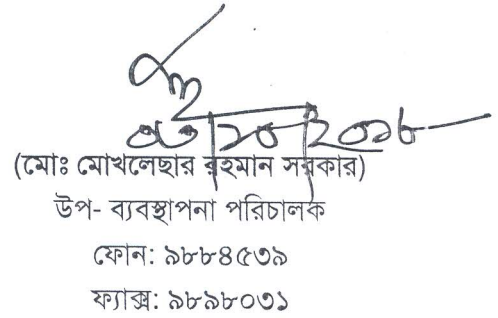 ০৩/১০/২০১৮
(মোঃ মোখলেছার রহমান সরকার)
উপ- ব্যবস্থাপনা পরিচালক
ফোন: ৯৮৮৪৫৩৯
ফ্যাক্স: ৯৮৯৮০৩১